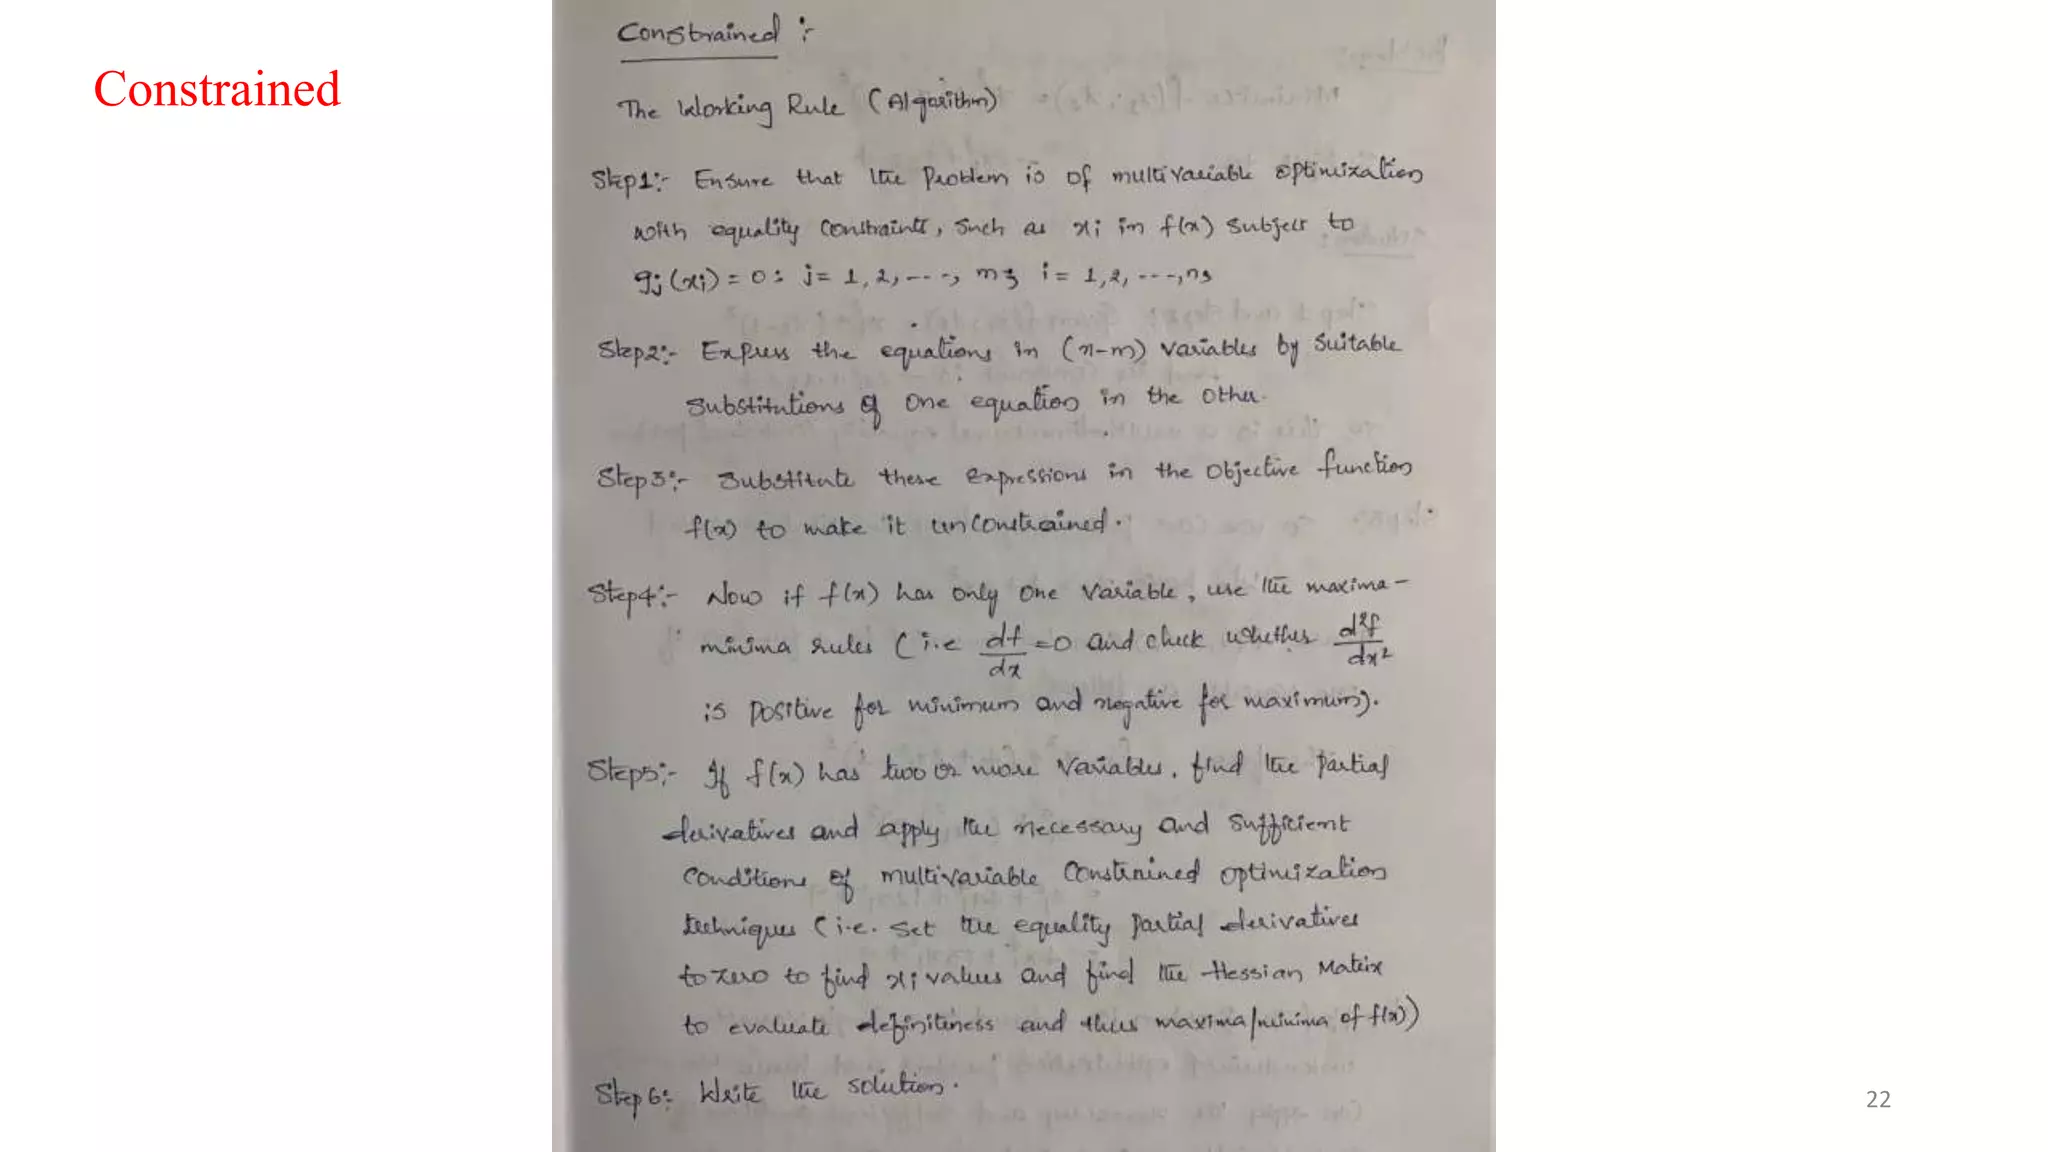 Constrained
Constrained :-
The Working Rule (Algorithm)
Step1:- Ensure that the Problem is of multivariable optimization
with equality constraints, such as xi in f(x) subject to
gj(xi) = 0: j= 1, 2, ---, m; i= 1,2, ---,n;
Step2:- Express the equations in (n-m) variables by suitable
substitutions of one equation in the other.
Step3:- Substitute these expressions in the objective function
f(x) to make it unconstrained.
Step4:- Now if f(x) has only one variable, use the maxima-
minima rules (i.e df/dx =0 and check whether d²f/dx²
is positive for minimum and negative for maximum).
Step5:- If f(x) has two or more variables, find the partial
derivatives and apply the necessary and sufficient
conditions of multivariable constrained optimization
techniques (i.e. set the equality partial derivatives
to zero to find xi values and find the Hessian Matrix
to evaluate definiteness and thus maxima/minima of f(x))
Step6: Write the solution.
22